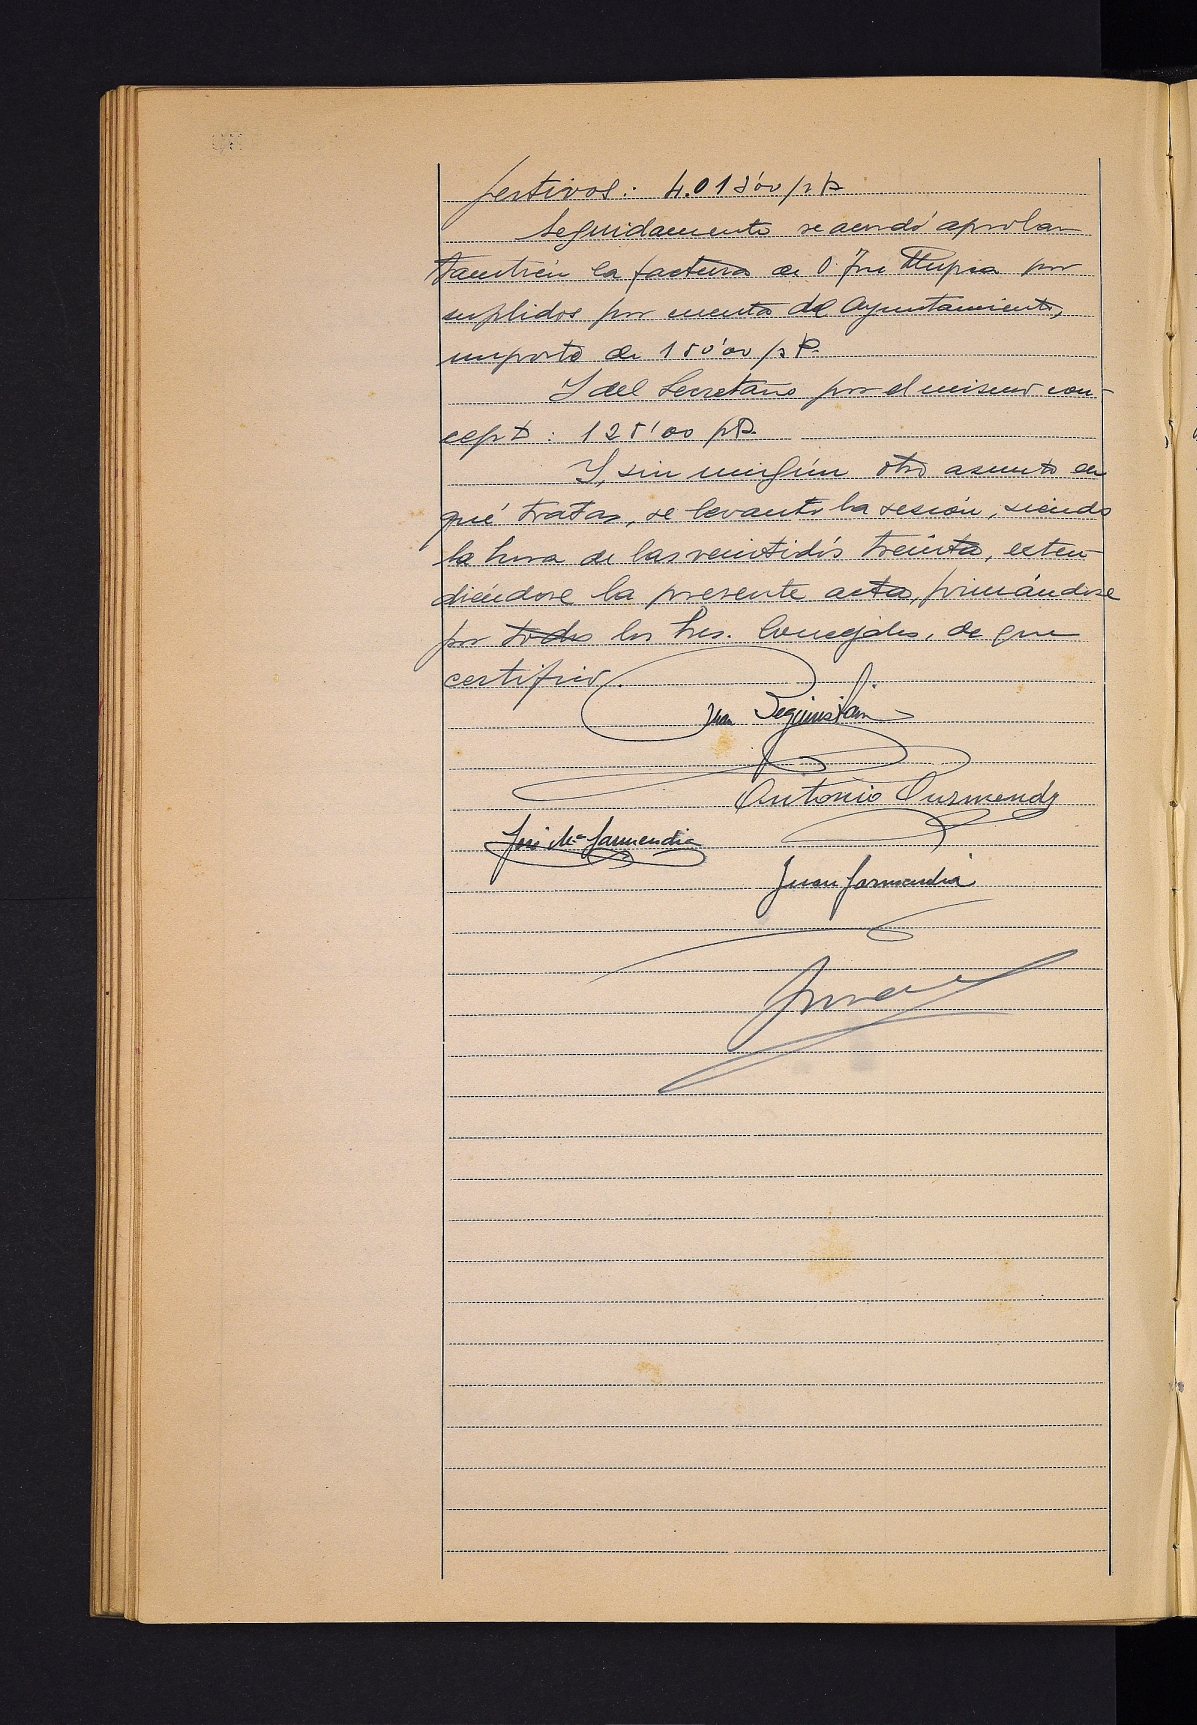 festivos: 4.013'00 pts
Seguidamente se acordó aprobar
también la factura de D. José por
suplidos por cuenta del Ayuntamiento,
importe de 150'00 pts.
Y del Secretario por el mismo con-
cepto: 125'00 pts.
Y, sin ningún otro asunto en
qué tratar, se levantó la sesión, siendo
la hora de las veintidós treinta, exten-
diéndose la presente acta, firmándose
por todos los Sres. Concejales, de que
certifico.
Juan Beguiristain
Antonio Gurmendi
José Mª Garmendia
Juan Garmendia